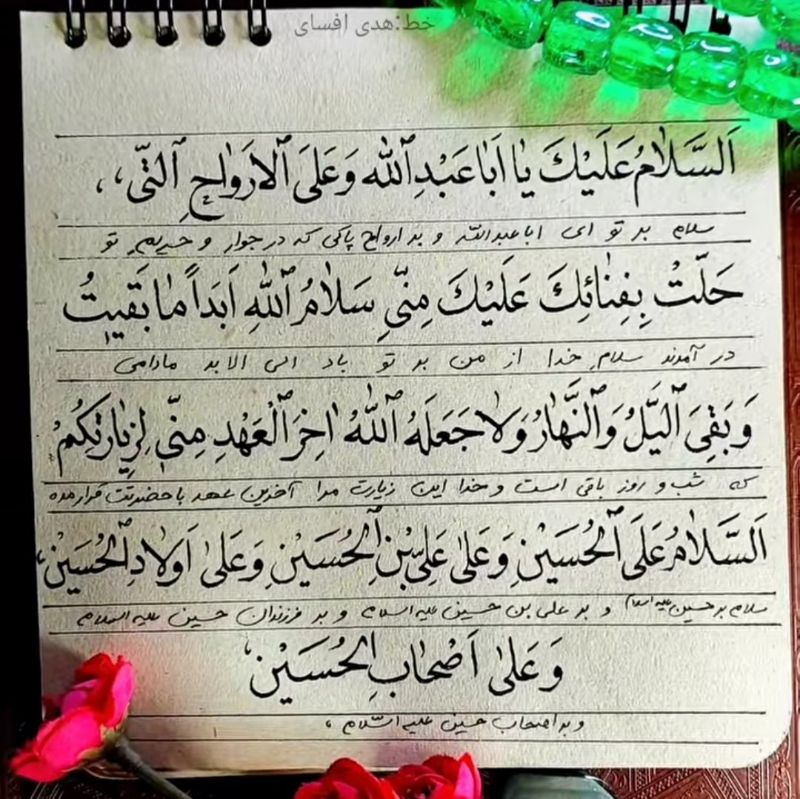 خط:هدی افسای
اَلسَّلامُ عَلَیْكَ یٰا اَبٰا عَبْدِ ٱلله وَ عَلَی ٱلارَواٰحِ ٱلَّتی،،
سلام بر تو ای اباعبدالله و بر ارواح پاکی که در جوار و حریم تو
حَلَّتْ بِفِنٰائِكَ عَلَیْكَ مِنّیِ سَلاٰمُ ٱللهِ اَبَداً مٰا بَقیٖتُ
در آمدند سلامِ خدا از من بر تو باد الی الابد مادامی
وَ بَقِیَ ٱلیَّلُ وَ ٱلنَّهٰارُ وَ لاٰ جَعَلَهُ ٱللهُ اٰخِرَ ٱلْعَهْدِ مِنّی لِزِیٰارَتِکُمْ
که شب و روز باقی است و خدا این زیارت مرا آخرین عهد با حضرتت قرار مده
اَلسَّلاٰمُ عَلَی ٱلْحُسَیْنِ وَ عَلیٰ عَلِیِّ بْنِ ٱلْحُسَیْنِ وَ عَلیٰ اَوْلاٰدِ ٱلْحُسَیْنِ،
سلام بر حسین علیه السلام و بر علی بن حسین علیه السلام و بر فرزندان حسین علیه السلام
وَ عَلیٰ اَصْحٰابِ ٱلْحُسَیْنِ،
و بر اصحاب حسین علیه السّلام،